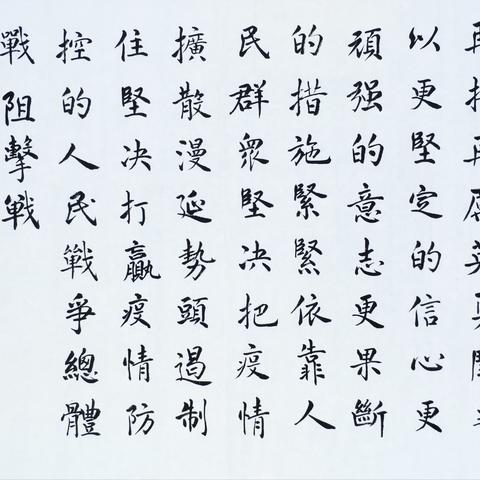 再接再厲英勇
以更堅定的信心更
頑强的意志更果斷
的措施緊緊依靠人
民群眾堅决把疫情
擴散漫延勢頭遏制
住堅决打贏疫情防
控的人民戰爭總體
戰阻擊戰